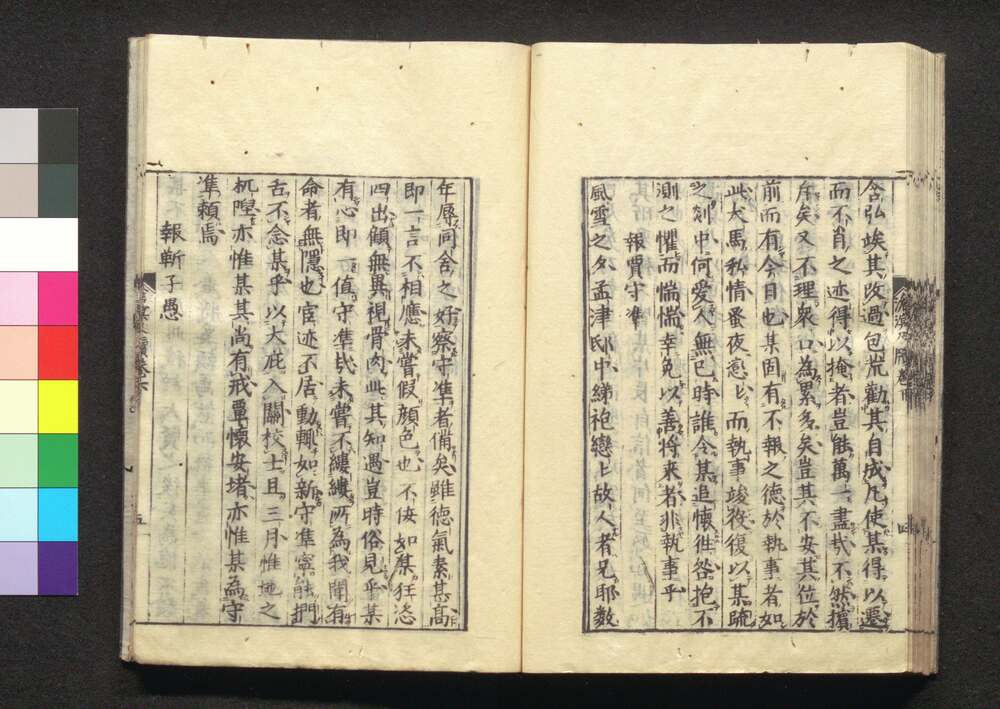 含弘竢其改過包荒勸其自成凡使某得以遷
而不肖之迹得以掩者豈能萬一盡哉不然擯
斥矣又不理衆口為累多矣豈其不安其位於
前而有今日也某固有不報之德於執事者如
此犬馬私情蚤夜惹し而執事竣役復以某疏
之剡中何愛人無已時誰令某追懷徃咎抱不
測之懼而惴惴幸免以善將來者非執事乎
報賈守準
風雪之夕孟津邸中綈袍戀上故人者兄耶數
年辱同舍之好察守準者備矣雖德氣素甚高
即一言不相應未嘗假顏色也不佞如某狂恣
四出顧無異視骨肉此其知遇豈時俗見乎某
有心即一值守準哉未嘗不縷縷所為我開有
命者無隱也官迹不居動輒如新守準寧能捫
舌不念某乎以大庇入關校士且三月惟地之
杌隉亦惟某其尚有戒覃懷安堵亦惟某為守
準賴焉
報靳子愚